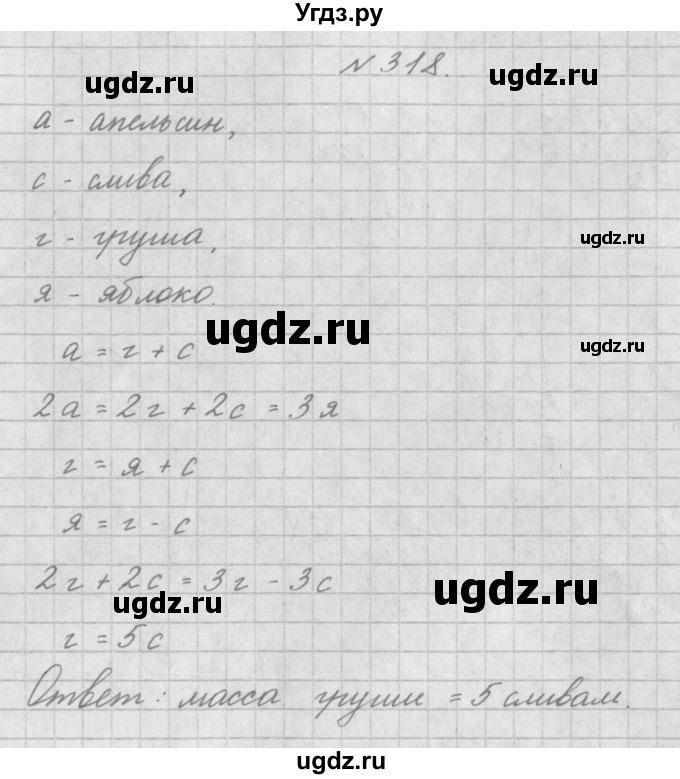 Угдз.ру
№318.
ugdz.ru ugdz.ru
а - апельсин,
с - слива,
г - груша,
ugdz.ru
я - яблоко.
ugdz.ru
а = г + с
ugdz.ru
2а = 2г + 2с = 3я
г = я + с
я = г - с
2г + 2с = 3г - 3с
ugdz.ru ugdz.ru
г = 5с
Ответ: масса груши = 5 сливам.
ugdz.ru